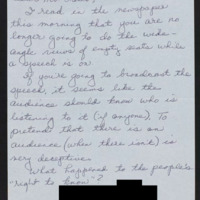 I read in the newspaper
this morning that you are no
longer going to do the wide-
angle views of empty seats while
a speech is on.
If you're going to broadcast the
speech, it seems like the
audience should know who is
listening to it (if anyone). To
pretend that there is an
audience (when there isn't) is
very deceptive.
What happened to the people's
"right to know"?